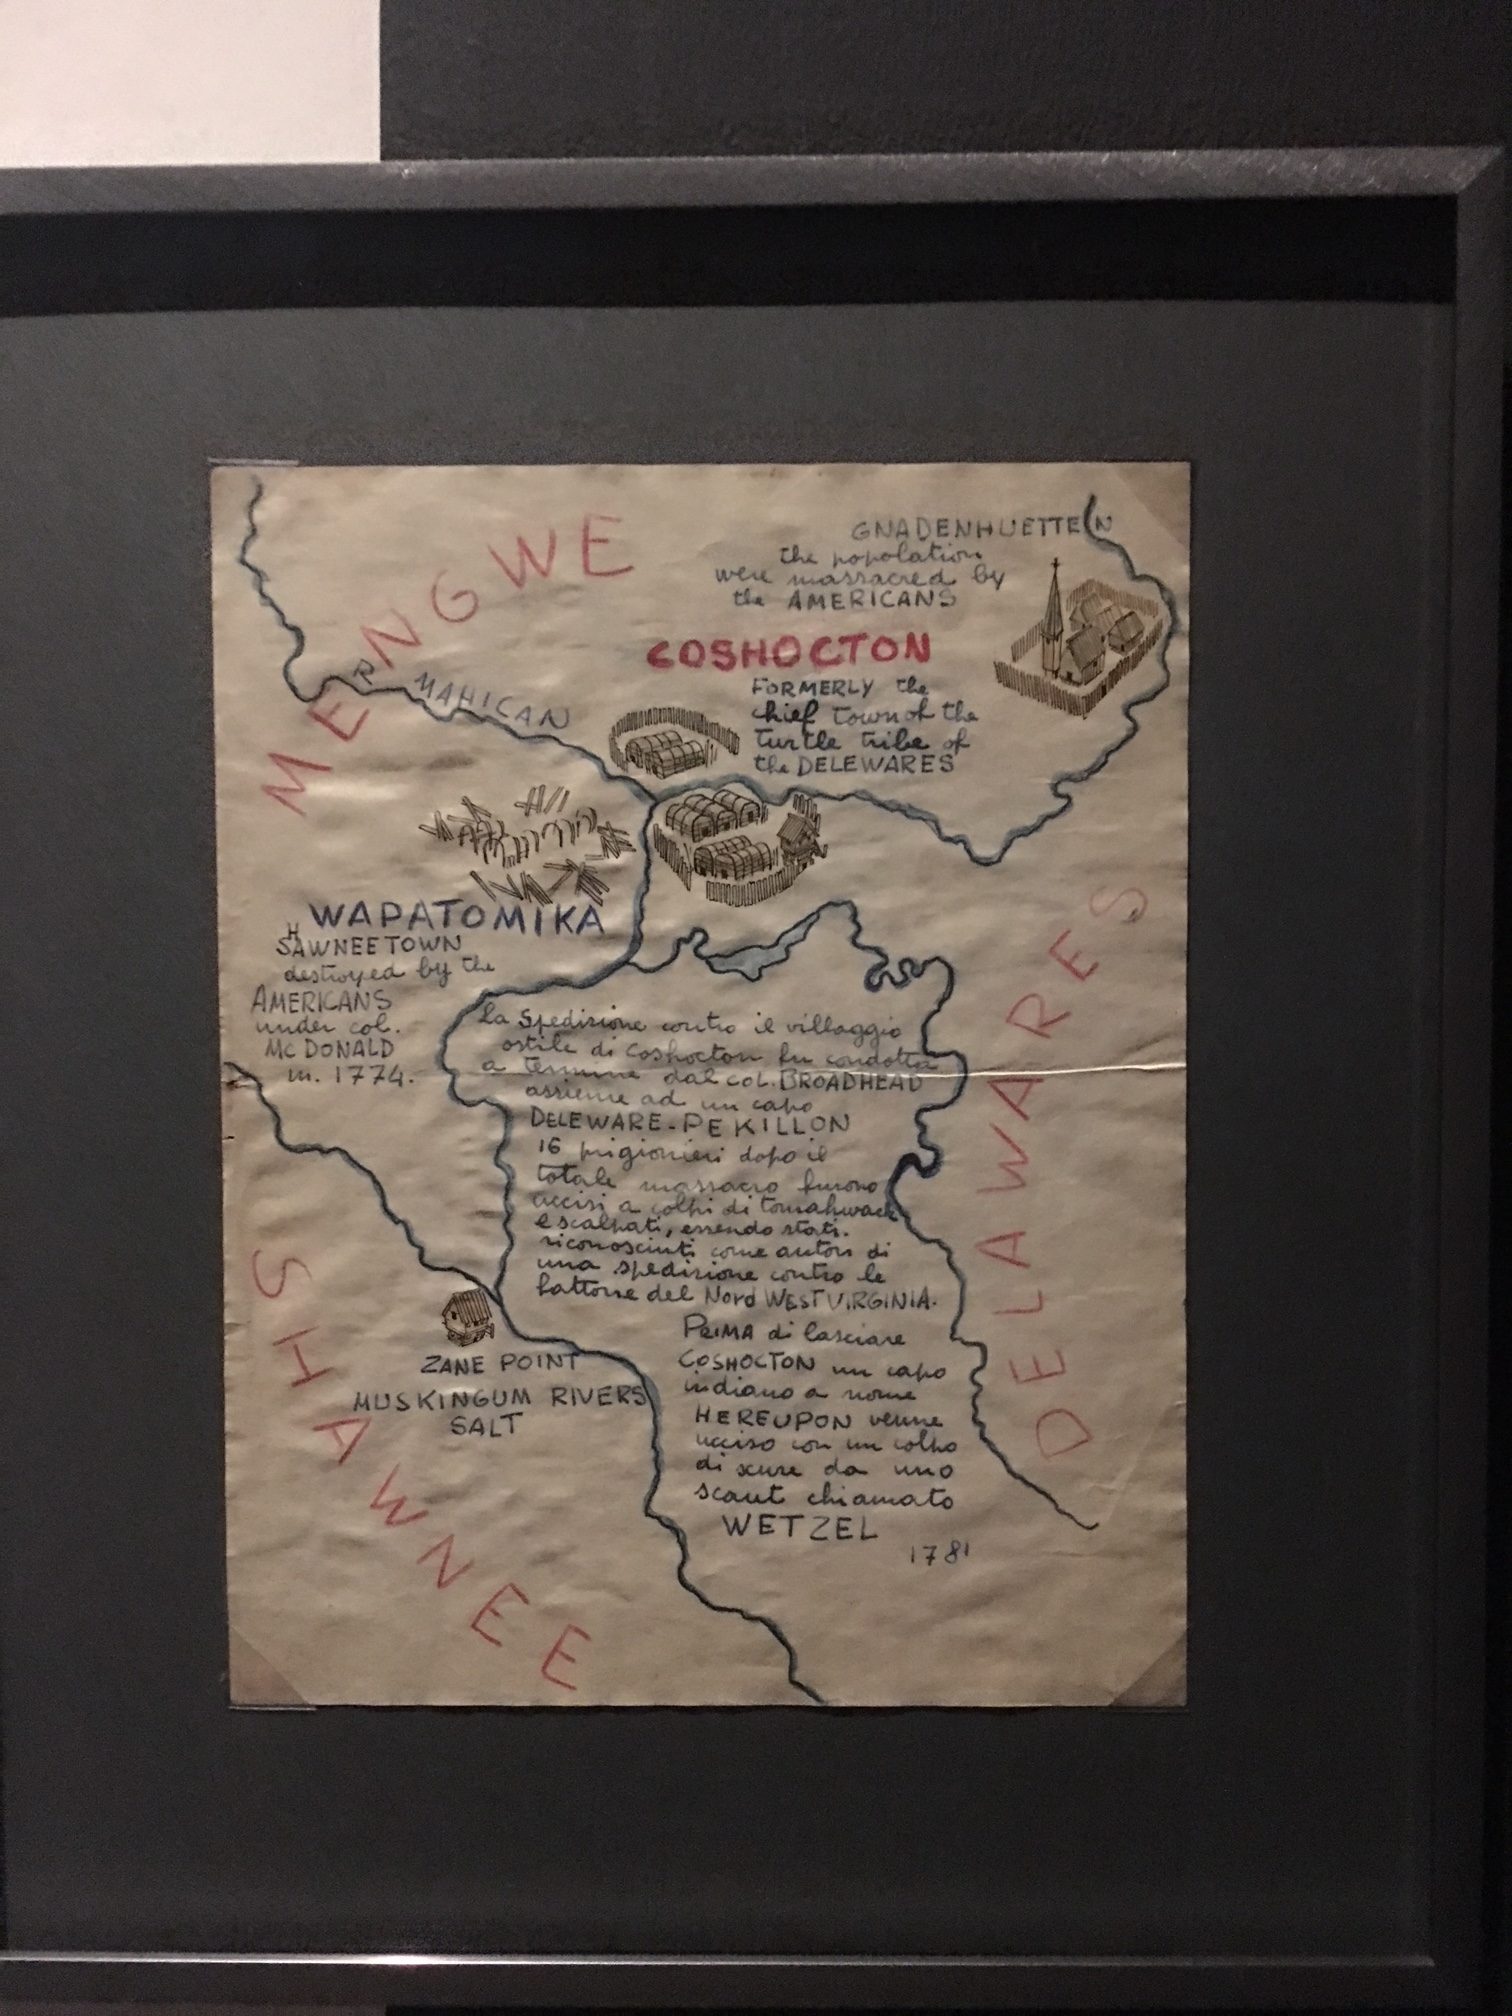 MENGWE
GNADENHUETTEN
the popolation
were massacred by
the AMERICANS
COSHOCTON
FORMERLY the
chief town of the
turtle tribe of
the DELEWARES
R MAHICAN
WAPATOMIKA
SHAWNEETOWN
destroyed by the
AMERICANS
under col.
Mc DONALD
in. 1774.
La Spedizione contro il villaggio
ostile di Coshocton fu condotta
a termine dal COL. BROADHEAD
assieme ad un capo
DELEWARE-PEKILLON
16 prigionieri dopo il
totale massacro furono
uccisi a colpi di tomahwack
e scalpati, essendo stati.
riconosciuti come autori di
una spedizione contro le
fattorie del Nord WESTVIRGINIA.
PRIMA di lasciare
COSHOCTON un capo
indiano a nome
HEREUPON venne
ucciso con un colpo
di scure da uno
scaut chiamato
WETZEL
1781
ZANE POINT
MUSKINGUM RIVERS
SALT
SHAWNEE
DELAWARES